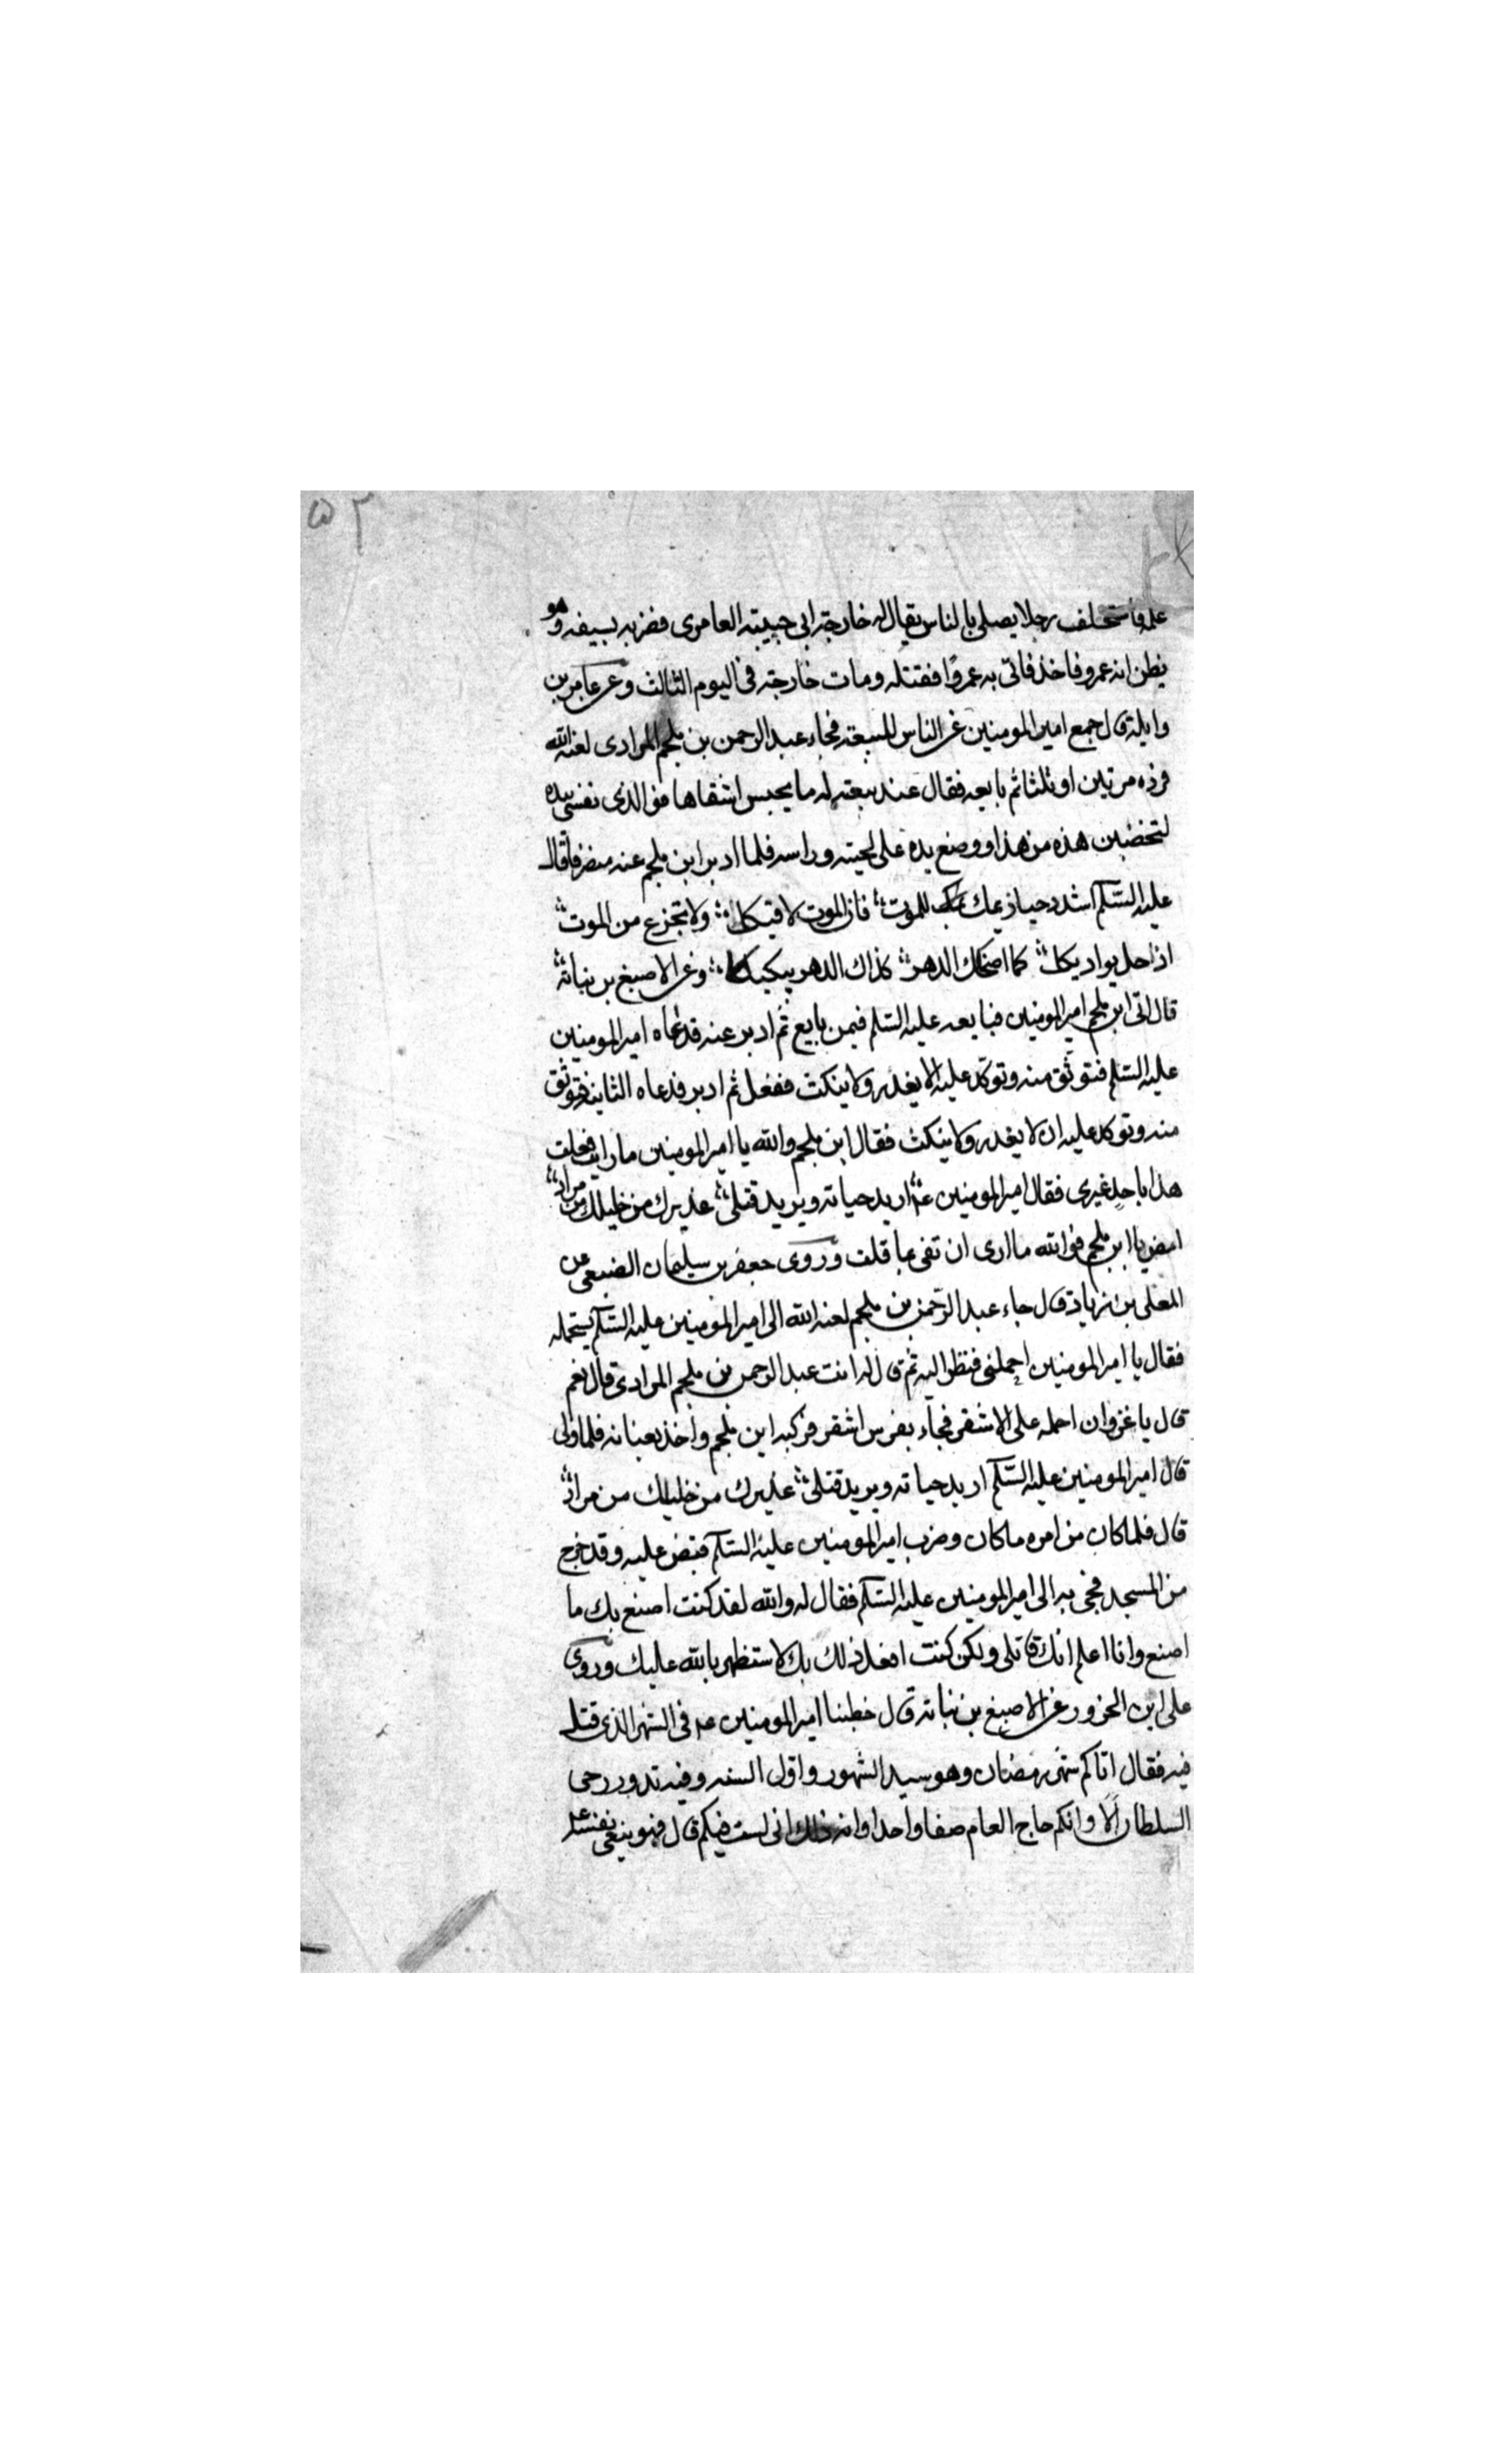 ٥٢
علة فاستخلف رجلا يصلى بالناس يقال له خارجة ابى حبيبته العامرى فضربه بسيفه وهو
يظن انه عمرو فاخذ فاتى به عمروًا فقتله ومات خارجة فى اليوم الثالث وعن عامر بن
وايلة قال جمع امير المومنين ع الناس للبيعة فجاء عبد الرحمن بن ملجم المرادى لعنه الله
فرده مرتين او ثلثا ثم بايعه فقال عند بيعته له ما يحبس اشقاها فو الذى نفسى بيده
لتخضبن هذه من هذا ووضع يده على لحيته وراسه فلما ادبر ابن ملجم عنه منصرفا قال
عليه السّلم اشدد حيازيمك للموت فان الموت لاقيكا ولا تجزع من الموت
اذا حل بواديكا كما اضحكك الدهر كذاك الدهر يبكيكا وعن الاصبغ بن نباتة
قال اتى ابن ملجم امير المومنين فبايعه عليه السّلم فيمن بايع ثم ادبر عنه فدعاه امير المومنين
عليه السّلم فتوثق منه وتوكّد عليه الا يغدر ولا ينكث ففعل ثم ادبر فدعاه الثانية فتوثق
منه وتوكد عليه ان لا يغدر ولا ينكث فقال ابن ملجم والله يا امير المومنين ما رايت فعلت
هذا باحد غيرى فقال امير المومنين ع اريد حياته ويريد قتلى عذيرك من خليلك من مراد
امض يا ابن ملجم فو الله ما ارى ان تفى بما قلت وروى جعفر بن سليمان الضبعى عن
المعلى بن زياد قال جاء عبد الرّحمن بن ملجم لعنه الله الى امير المومنين عليه السّلم يستحمله
فقال يا امير المومنين احملنى فنظر اليه ثم قال له انت عبد الرحمن بن ملجم المرادى قال نعم
قال يا غزوان احمله على الاشقر فجاء بفرس اشقر فركبه ابن ملجم واخذ بعنانه فلما ولى
قال امير المومنين عليه السّلم اريد حياته ويريد قتلى عذيرك من خليلك من مراد
قال فلما كان من امره ما كان وضرب امير المومنين عليه السّلم قبض عليه وقد خرج
من المسجد فجئ به الى امير المومنين عليه السّلم فقال له والله لقد كنت اصنع بك ما
اصنع وانا اعلم انك قاتلى ولكن كنت افعل ذلك بك لاستظهر بالله عليك وروى
على ابن الحزور عن الاصبغ بن نباتة قال خطبنا امير المومنين ع فى الشهر الذى قتل
فيه فقال اتاكم شهر رمضان وهو سيد الشهور واول السنه وفيه تدور رحى
السلطان الا وانكم حاج العام صفا واحدا وانه ذلك انى لست فيكم قال فهو ينعى نفسه